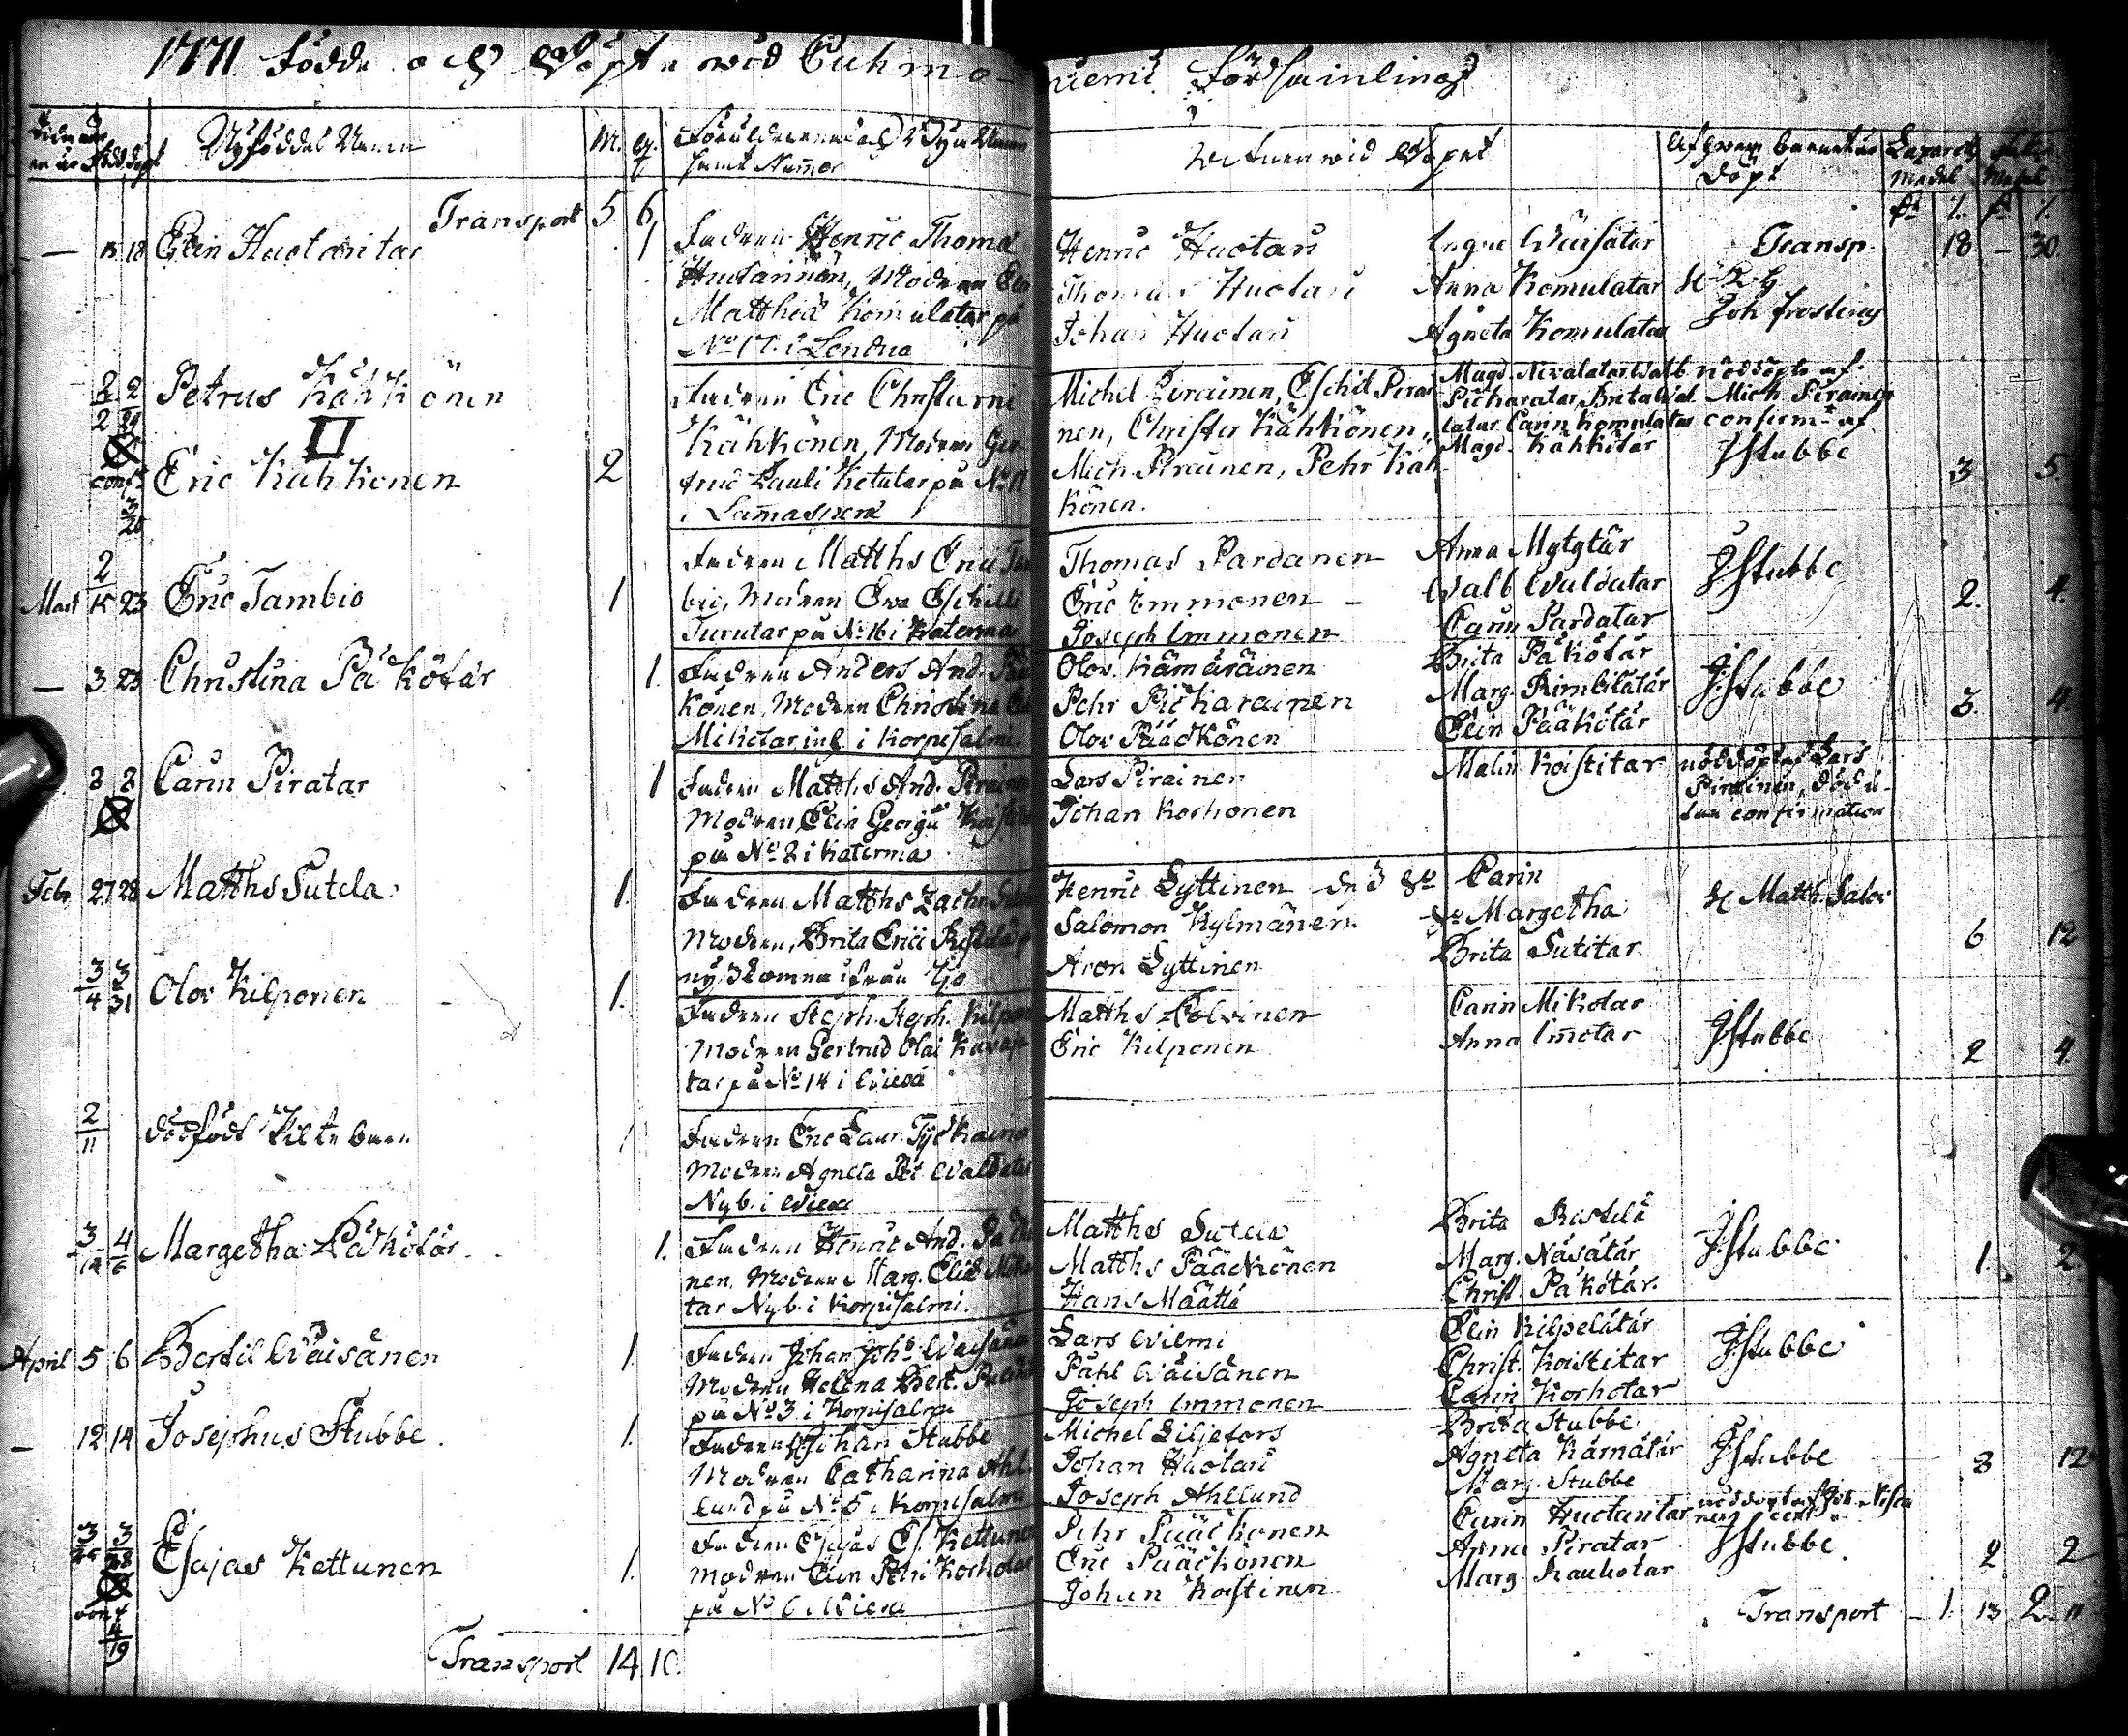 1771 Födde och Döpte wid Cuhmo-
niemi Församling
Nyföddas Namn
M. Q.
samt Nummer
wid Döpet
Döpt
Medel
Transport 5 6
Transp. 18 - 30.
— 15 18 Elin Huotaritar 1
Fadren Henric Thomæ
Huotarinen, Modren Elin
Matthiæ Komulatar på
No 17. i Lendua
Henric Huotari
Thomas Huotari
Johan Huotari
Anna Komulatar
Agneta Komulatar
Joh. Frosterus
2/2 2/24 Petrus Kähkönen
II
Conf. 3/20
Eric Kähkönen 2
Fadren Eric Christierni
Kähkönen, Modren Ger-
trud Pauli Ketutar på No 17
i Lamasperä
Michel Pirainen, Eschil Pirai
nen, Christer Kähkönen,
Mich. Pirainen, Pehr Käh-
könen.
Magd. Kähkötär
nöddöpte af
Mich. Pirainen
confirm. af
JStubbe
3 5.
Mart 2/15 23 Eric Tambio 1
Fadren Matths Erici Tam
bio, Modren Ewa Eschilli
Turutar på No 16 i Katerma
Thomas Pardanen
Eric Immonen —
Joseph Immonen
Anna Mytytär
Walb Waldatar
Carin Pardatar
JStubbe
2. 4.
— 3 23 Christina Päkötär 1.
Fadren Anders And. Pää
könen, Modren Christina
Mikotar inh. i Korpisalmi.
Olov. Kämäräinen
Pehr Pickarainen
Olov Pääckönen
Brita Päkötär
Marg. Rimbilätär
Elin Pääkötär
JStubbe
3. 4
8 8 Carin Piratar 1
Fadren Matths And. Pirainen
Modren Elin Georgii Koistitar
på No 2 i Katerma
Lars Pirainen
Johan Korhonen
Malin Koistitar
nöddöpt af Lars
Pirainen, död u-
tan confirmation
Febr 27 28 Matths Sutela 1.
Fadren Matths Zachr. Sutela
Modren, Brita Erici
nyss kommen ifrån Ijo
Henric Lyttinen
Salomon Kylmänen
Aron Lyttinen
Carin
Margetha
Brita Sutitar
H. Matth. Salov
6 12
3/4 3/31 Olov Kilponen 1.
Fadren Steph. Steph. Kilpon
Modren Gertrud Olai
tar på No 14 i Wiexi
Matths Polvinen
Eric Kilponen
Carin Mikotar
Anna Im̄otar
JStubbe
2 4
2/11 dödfödt Piltebarn 1
Fadren Eric Laur. Tyckainen
Modren Agneta Pet. Waldatar
Nyb. i Wiexi
3/14 4/6 Margetha Päkötär 1.
Fadren Henric And. Päckö
nen. Modren Marg. Eliæ Miko
tar Nyb. i Korpisalmi.
Matths Sutela
Matths Pääckönen
Hans Määttä
Brita Ristelä
Marg. Näsätär
Christ. Päkötär.
JStubbe
1. 2
April 5 6 Bertil Wäisänen 1.
Fadren Johan Johs. Wäisänen
Modren Helena Bert.
på No 3 i Korpisalmi
Lars Wilmi
Påhl Wäisänen
Joseph Immonen
Elin Kilpelätär
Christ. Koistitar
Carin Korhotar
JStubbe
— 12 14 Josephus Stubbe. 1.
Fadren Johan Stubbe
Modren Catharina Ahl-
lund på No 5 i Korpisalmi
Michel Liljefors
Johan Huotari
Joseph Ahllund
Brita Stubbe
Agneta Kärnätär
Marg. Stubbe
JStubbe
8 12
3/28 3/28 Esajas Kettunen 1.
conf 4/19
Fadren Esajas Es. Kettunen
Modren Elin Petri Korhotar
på No 6 i Wiexi
Pehr Pääckonen
Eric Pääckönen
Johan Koistinen
Carin Huotaritar
Anna Piratar
Marg. Rauhotar
JStubbe.
2 2
Transport 14 10.
Transport — 1. 13 2. 11